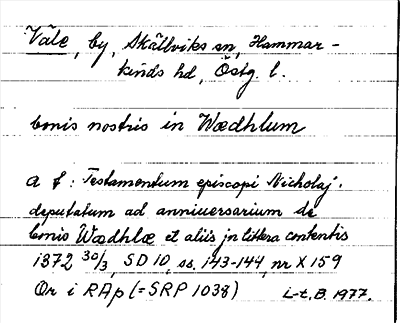 Väle, by, Skällviks sn, Hammar-
kinds hd, Östg. l.
bonis nostris in Wædhlum
a f: Testamentum episcopi Nicholaj.
deputatum ad anniuersarium de
bonis Wædhlæ et aliis jn littera contentis
1372 30/3, SD 10, ss. 143-144, nr X 159
Or i RAp (=SRP 1038) L-t, B. 1977.